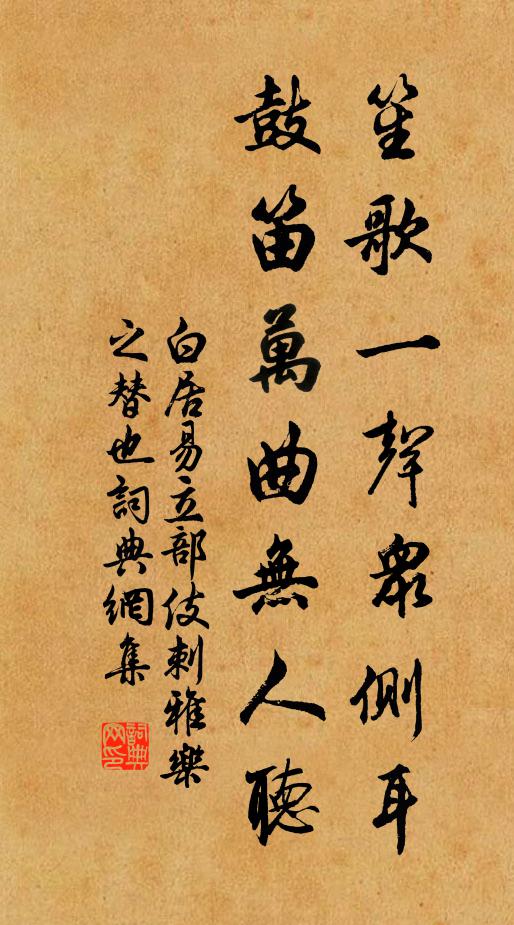 笙歌一聲衆側耳
鼓笛萬曲無人聽
白居易立部伎刺雅樂
之替也詞典網集
詞典網印